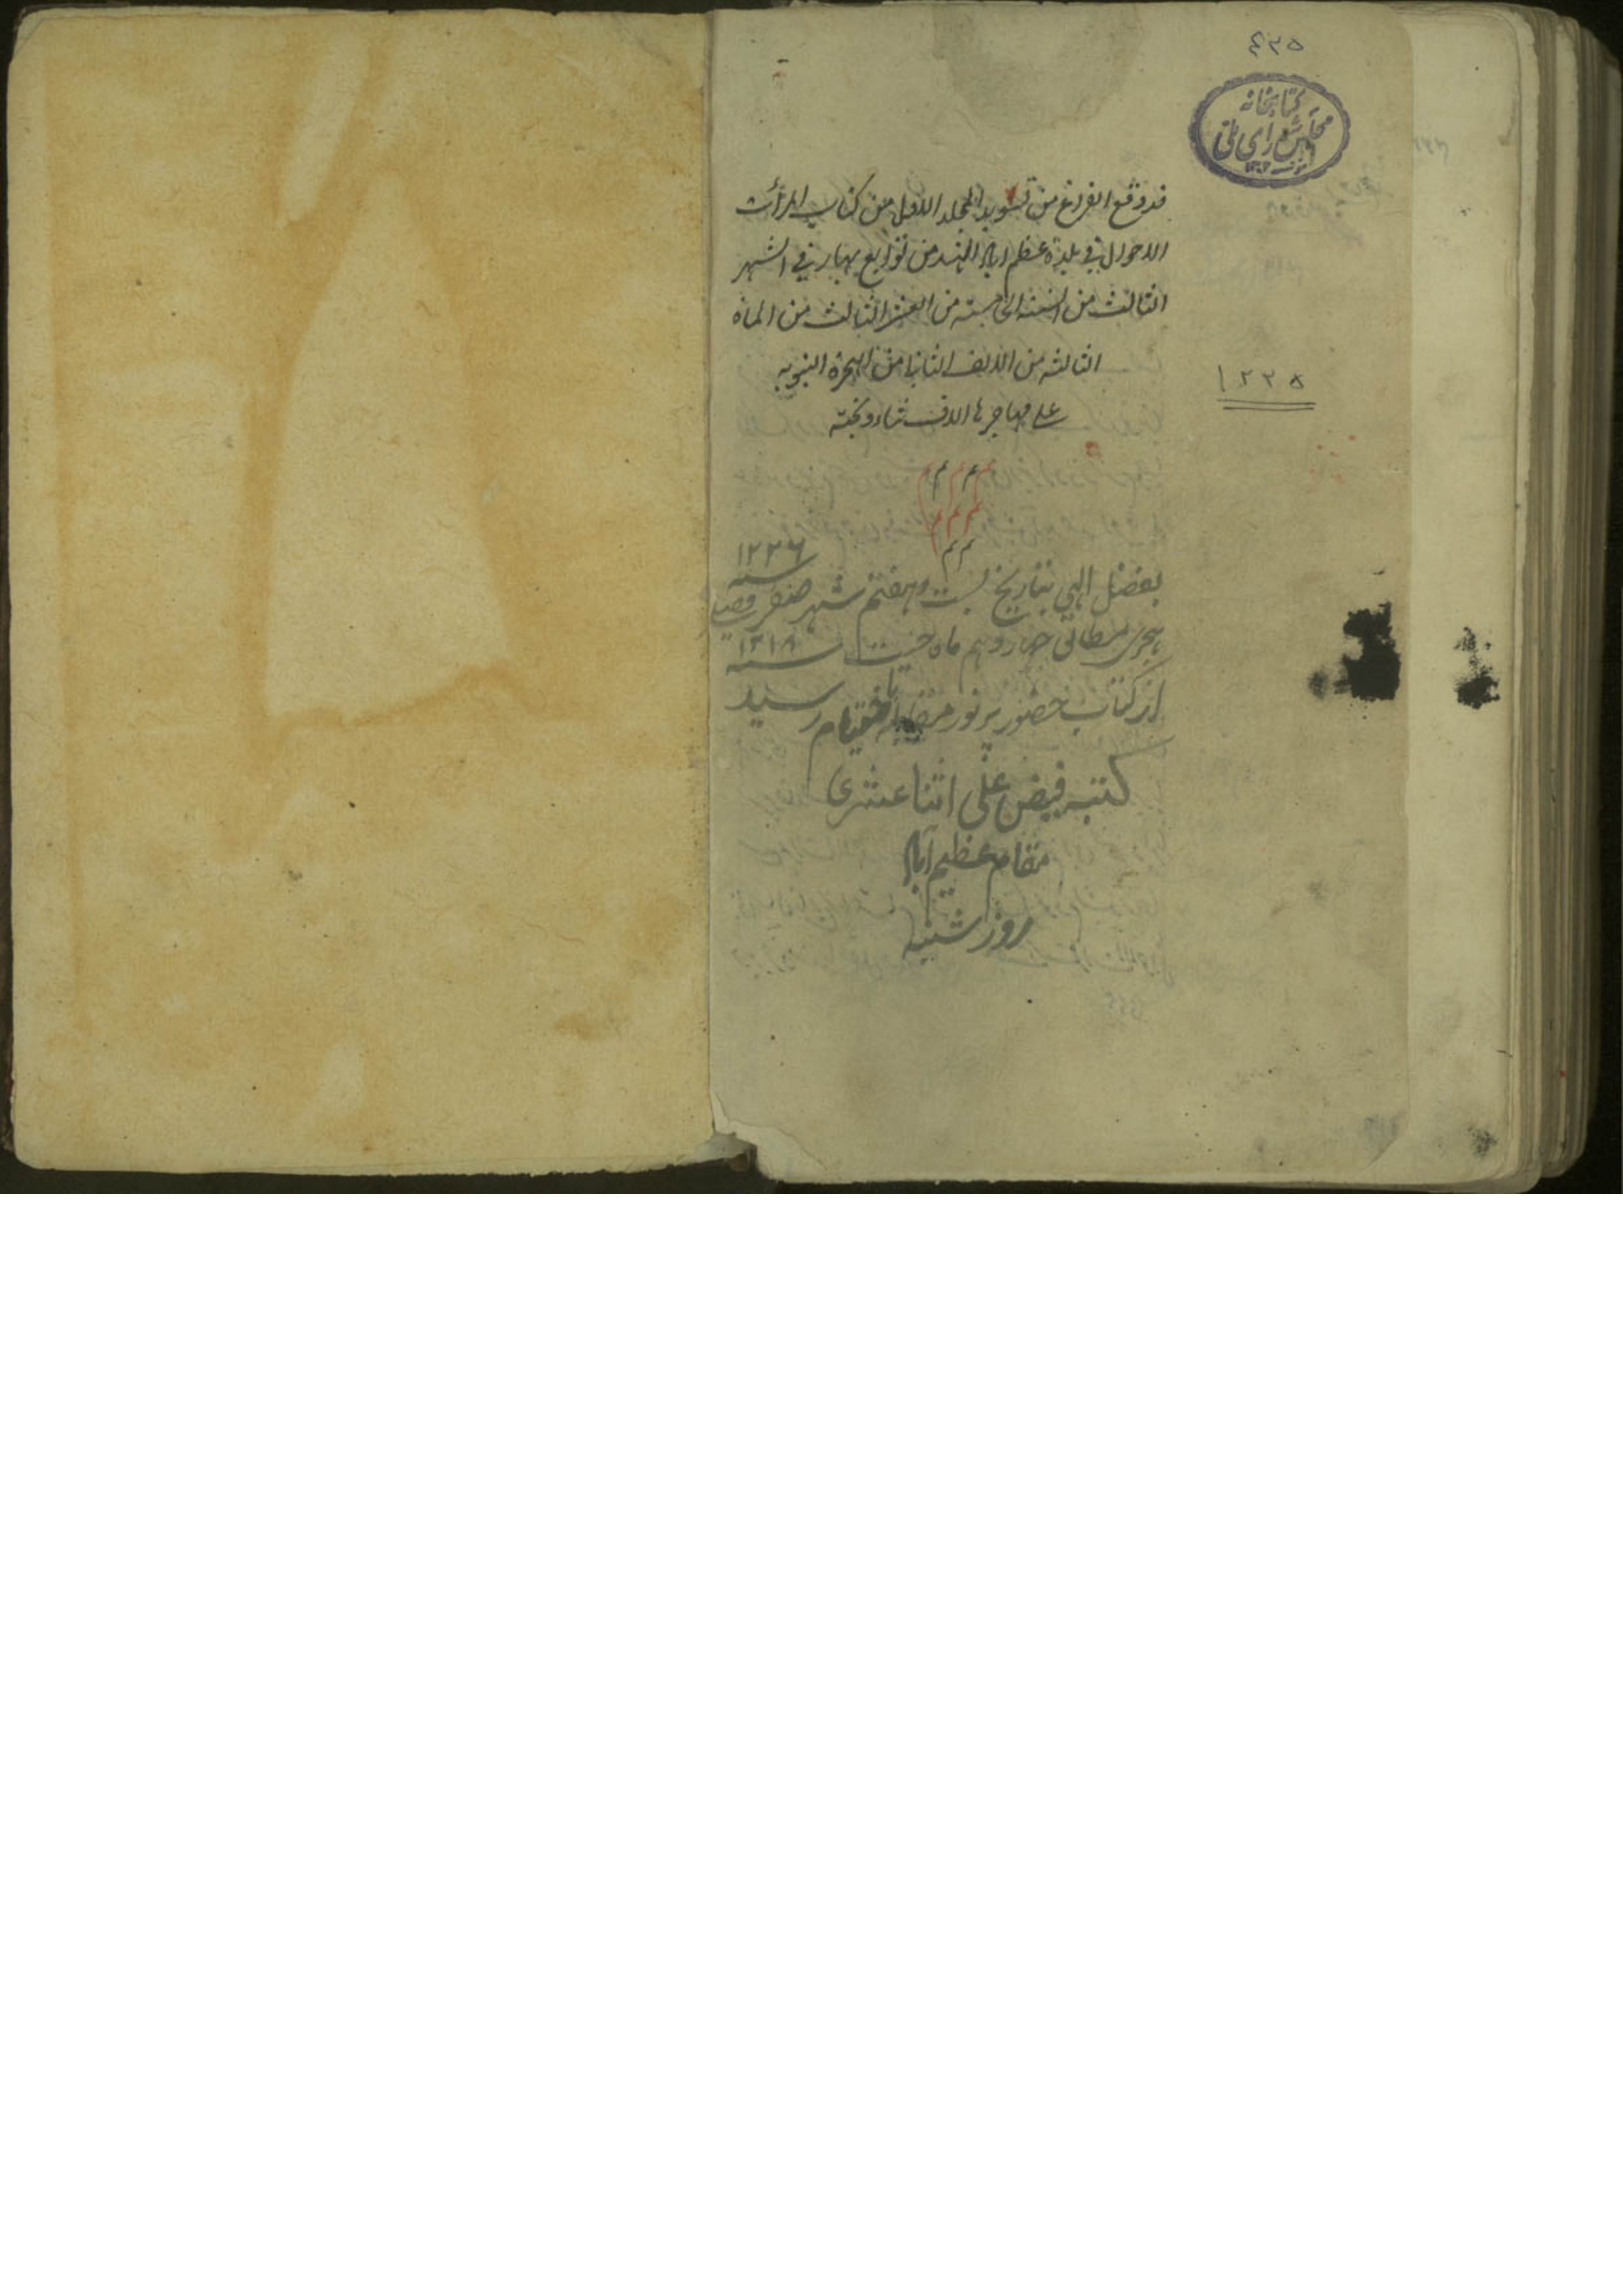 ٤٢٥
کتابخانه
مجلس شورای ملی
قد وقع الفراغ من تسوید المجلد الاول من کتاب المرأت
الاحوال فی بلدة عظیم اباد الهند من توابع بهار فی الشهر
الثالث من السنه الخامسه من العشر الثالث من المأة
الثالثه من الالف الثانیا من الهجرة النبویه
علی مهاجرها الاف ثناء و تحیة
۱۲۲۵
م م م م
م م م
م م
بفضل الهی بتاریخ بست و هفتم شهر صفر ۱۲۲۶ سنه
هجری مطابق چهاردهم ماه چیت سنه ۱۲۱۸ فصلی
از کتاب حضور پرنور باختتام رسید
کتبه فیض علی اثناعشری
مقام عظیم آباد
روز شنبه